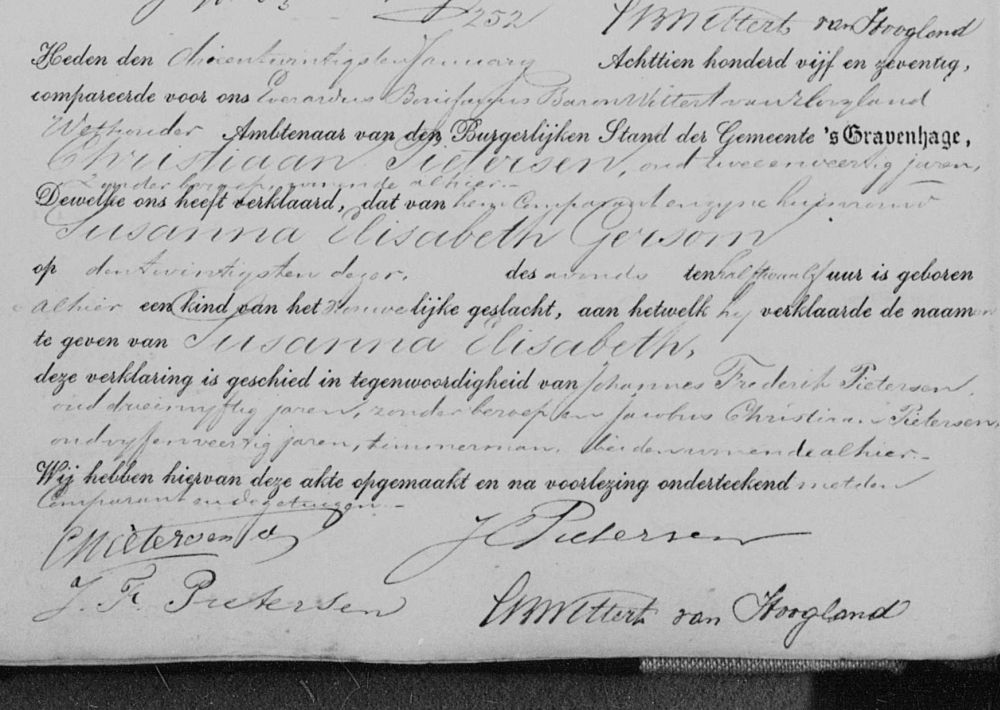 252
EBWittert van Hoogland
Heden den drieentwintigsten January Achttien honderd vijf en zeventig,
compareerde voor ons Everardus Bonifacius Baron Wittert van Hoogland
Wethouder Ambtenaar van den Burgerlijken Stand der Gemeente 's Gravenhage,
Christiaan Pietersen, oud tweeenveertig jaren,
zonder beroep, wonende alhier.-
Dewelke ons heeft verklaard, dat van hem Comparant en zyne huisvrouw
Susanna Elisabeth Gersom
op den twintigsten dezer, des avonds ten half twaalf uur is geboren
alhier een kind van het vrouwelijke geslacht, aan hetwelk hy verklaarde de naamen
te geven van Susanna Elisabeth,
deze verklaring is geschied in tegenwoordigheid van Johannes Frederik Pietersen,
oud drieenvyftig jaren, zonder beroep en Jacobus Christiaan Pietersen,
oud vyfenveertig jaren, timmerman, beiden wonende alhier.-
Wij hebben hiervan deze akte opgemaakt en na voorlezing onderteekend met den
Comparant en de getuigen.-
Pietersen
JC Pietersen
J. F. Pietersen
EBWittert van Hoogland